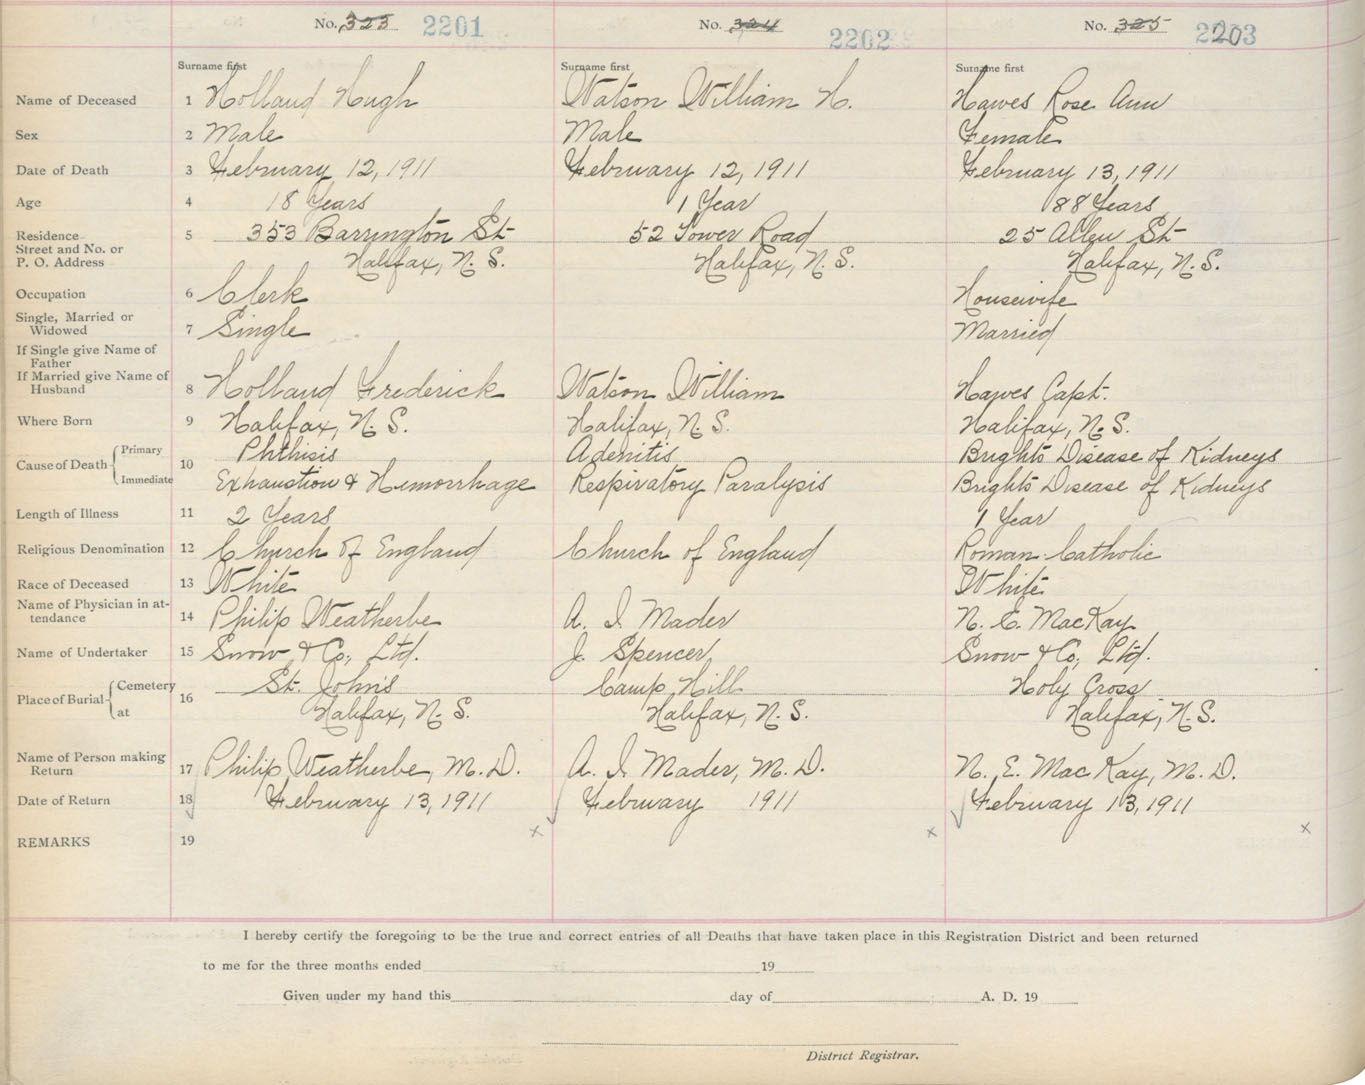 No. 323 2201 No. 324 2202 No. 325 2203
Surname first Surname first Surname first
Name of Deceased 1 Holland Hugh Watson William H. Hawes Rose Ann
Sex 2 Male Male Female
Date of Death 3 February 12, 1911 February 12, 1911 February 13, 1911
Age 4 18 Years 1 Year 88 Years
Residence 5 353 Barrington St 52 Tower Road 25 Allen St
Street and No. or
P. O. Address Halifax, N. S. Halifax, N. S. Halifax, N. S.
Occupation 6 Clerk Housewife
Single, Married or
Widowed 7 Single Married
If Single give Name of
Father
If Married give Name of
Husband 8 Holland Frederick Watson William Hawes Capt.
Where Born 9 Halifax, N. S. Halifax, N. S. Halifax, N. S.
Cause of Death Primary 10 Phthisis Adenitis Brights Disease of Kidneys
Immediate Exhaustion & Hemorrhage Respiratory Paralysis Brights Disease of Kidneys
Length of Illness 11 2 Years 1 Year
Religious Denomination 12 Church of England Church of England Roman Catholic
Race of Deceased 13 White White
Name of Physician in at-
tendance 14 Philip Weatherbe A. I. Mader N. E. MacKay
Name of Undertaker 15 Snow & Co., Ltd. J. Spencer Snow & Co., Ltd.
Place of Burial Cemetery 16 St. John's Camp Hill Holy Cross
at Halifax, N. S. Halifax, N. S. Halifax, N. S.
Name of Person making
Return 17 Philip Weatherbe, M. D. A. I. Mader, M. D. N. E. MacKay, M. D.
Date of Return 18 February 13, 1911 February 1911 February 13, 1911
REMARKS 19
I hereby certify the foregoing to be the true and correct entries of all Deaths that have taken place in this Registration District and been returned
to me for the three months ended 19
Given under my hand this day of A. D. 19
District Registrar.